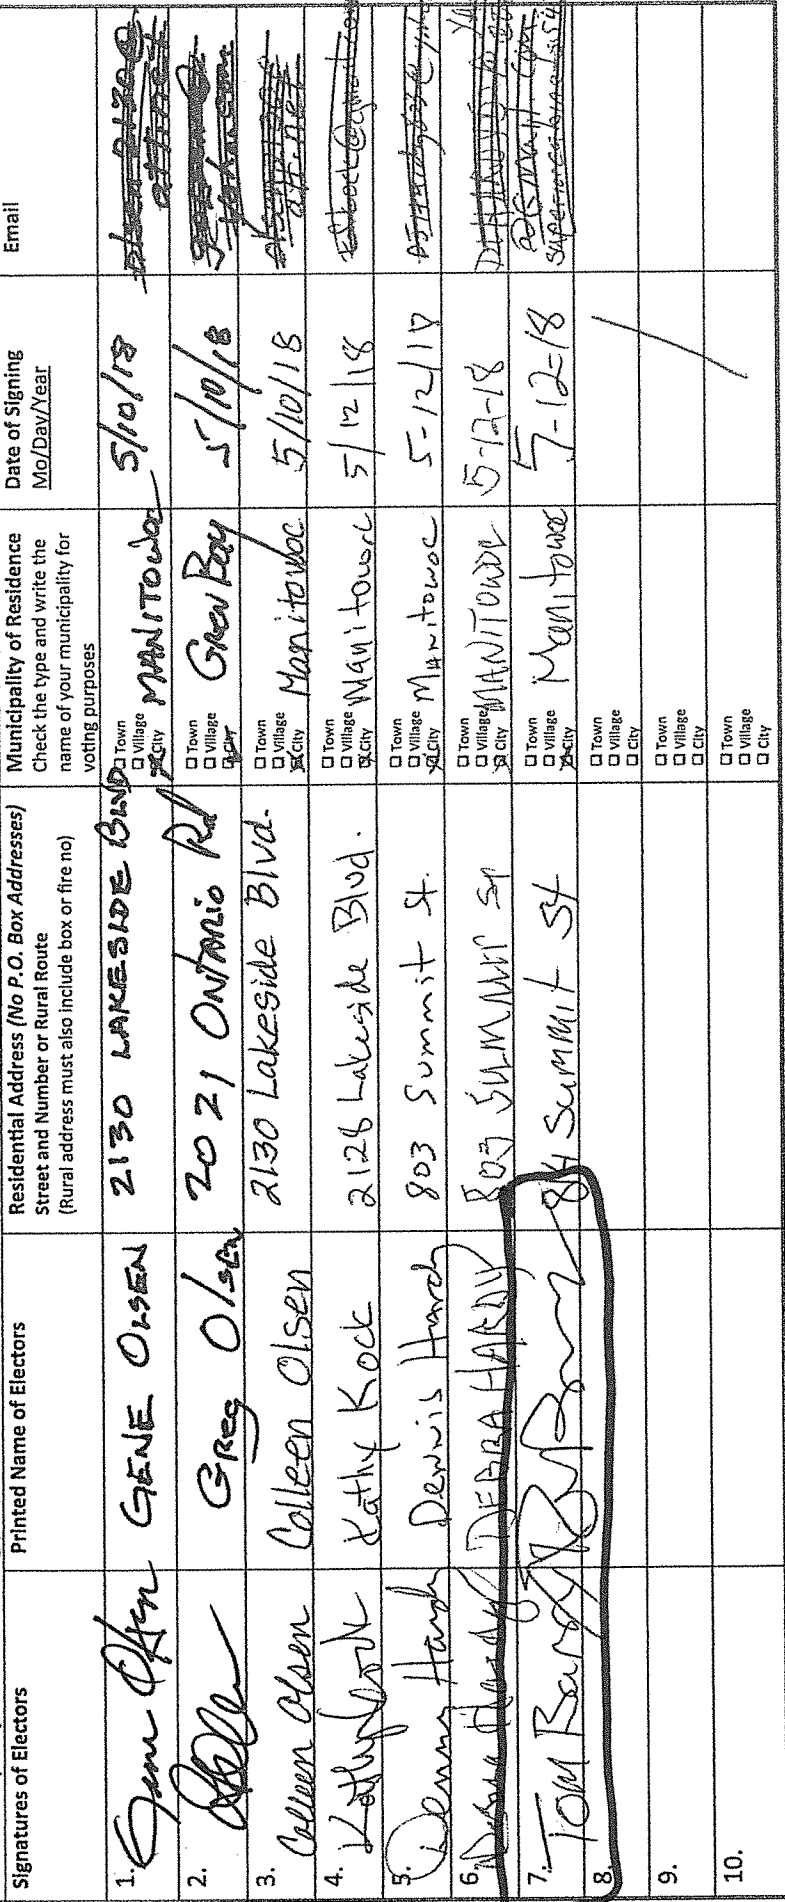 Signatures of Electors
Printed Name of Electors
Residential Address (No P.O. Box Addresses)
Street and Number or Rural Route
(Rural address must also include box or fire no)
Municipality of Residence
Check the type and write the
name of your municipality for
voting purposes
Date of Signing
Mo/Day/Year
Email
1. Gene Olsen GENE OLSEN 2130 LAKESIDE BLVD
□ Town
□ Village
□ City
MANITOWOC 5/10/18
2.
Greg Olsen 2021 ONTARIO Rd
□ Town
□ Village
□ City
Green Bay 5/10/18
3. Colleen Olsen Colleen Olsen 2130 Lakeside Blvd.
□ Town
□ Village
□ City
Manitowoc 5/10/18
4. Kathy Kock Kathy Kock 2128 Lakeside Blvd.
□ Town
□ Village
□ City
Manitowoc 5/12/18
5. Dennis Hardy Dennis Hardy 803 Summit St.
□ Town
□ Village
□ City
Manitowoc 5-12-18
6. Debra Hardy DEBRA HARDY 803 SUMMIT ST
□ Town
□ Village
□ City
MANITOWOC 5-12-18
7. Tom 814 Summit St
□ Town
□ Village
□ City
Manitowoc 5-12-18
8.
□ Town
□ Village
□ City
9.
□ Town
□ Village
□ City
10.
□ Town
□ Village
□ City